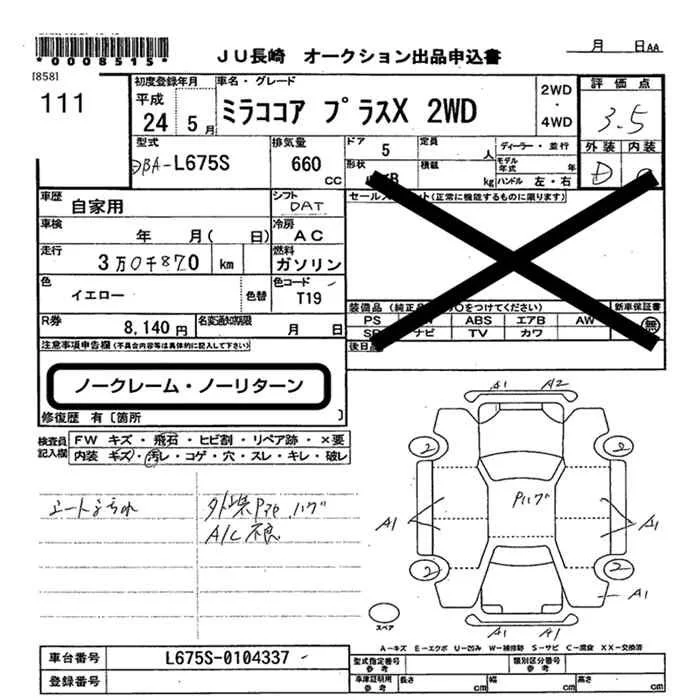 *0008515*
JU長崎 オークション出品申込書
月 日AA
[858]
111
初度登録年月
平成
24 5月
車名・グレード
ミラココア プラスX 2WD
2WD
・
4WD
評価点
3.5
外装 内装
D
型式
DBA-L675S
排気量
660
CC
ドア
5
定員
人
ディーラー・並行
形状
積載
kg
モデル
年式
年
ハンドル 左・右
車歴
自家用
シフト
DAT
車検
年 月( 日)
冷房
AC
走行
3万0千870 km
燃料
ガソリン
色
イエロー
色替
色コード
T19
R券
8,140円
名変通知期限
月 日
(正常に機能するものに限ります)
をつけてください)
新車保証書
PS
ABS
エアB
AW
無
ナビ
TV
カワ
後日品
注意事項申告欄(不具合内容等は具体的に記入して下さい)
ノークレーム・ノーリターン
修復歴 有〔箇所 〕
検査員
記入欄
FW キズ・飛石・ヒビ割・リペア跡・×要
内装 キズ・汚レ・コゲ・穴・スレ・キレ・破レ
シートよごれ
外装Pスレ ハゲ
A/C不良
A1 A2
2 2
Pハゲ
A1 A1
2 2
A1
A1
スペア
A-キズ E-エクボ U-凹み W-補修跡 S-サビ C-腐食 XX-交換済
車台番号
L675S-0104337
登録番号
型式指定番号
参考
類別区分番号
参考
車庫証明用
参考
長さ
cm
幅
cm
高さ
cm